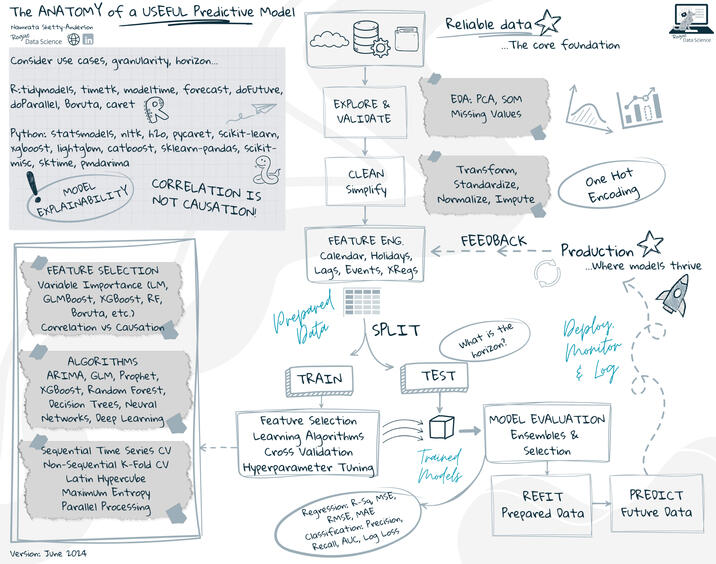 The ANATOMY of a USEFUL Predictive Model
Namrata Shetty-Anderson
Rogue
Data Science
in
Consider use cases, granularity, horizon...
R:tidymodels, timetk, modeltime, forecast, doFuture,
doParallel, Boruta, caret
R
Python: statsmodels, nltk, h2o, pycaret, scikit-learn,
xgboost, lightgbm, catboost, sklearn-pandas, scikit-
misc, sktime, pmdarima
!
MODEL
EXPLAINABILITY
CORRELATION IS
NOT CAUSATION!
Reliable data
...The core foundation
Rogue
Data Science
EXPLORE &
VALIDATE
EDA: PCA, SOM
Missing Values
CLEAN
Simplify
Transform,
Standardize,
Normalize, Impute
One Hot
Encoding
FEATURE ENG.
Calendar, Holidays,
Lags, Events, XRegs
FEEDBACK
Production
...Where models thrive
Prepared
Data
SPLIT
What is the
horizon?
Deploy,
Monitor
& Log
TRAIN
TEST
Feature Selection
Learning Algorithms
Cross Validation
Hyperparameter Tuning
Trained
Models
MODEL EVALUATION
Ensembles &
Selection
REFIT
Prepared Data
PREDICT
Future Data
Regression: R-Sq, MSE,
RMSE, MAE
Classification: Precision,
Recall, AUC, Log Loss
FEATURE SELECTION
Variable Importance (LM,
GLMBoost, XGBoost, RF,
Boruta, etc.)
Correlation vs Causation
ALGORITHMS
ARIMA, GLM, Prophet,
XGBoost, Random Forest,
Decision Trees, Neural
Networks, Deep Learning
Sequential Time Series CV
Non-Sequential K-Fold CV
Latin Hypercube
Maximum Entropy
Parallel Processing
Version: June 2024